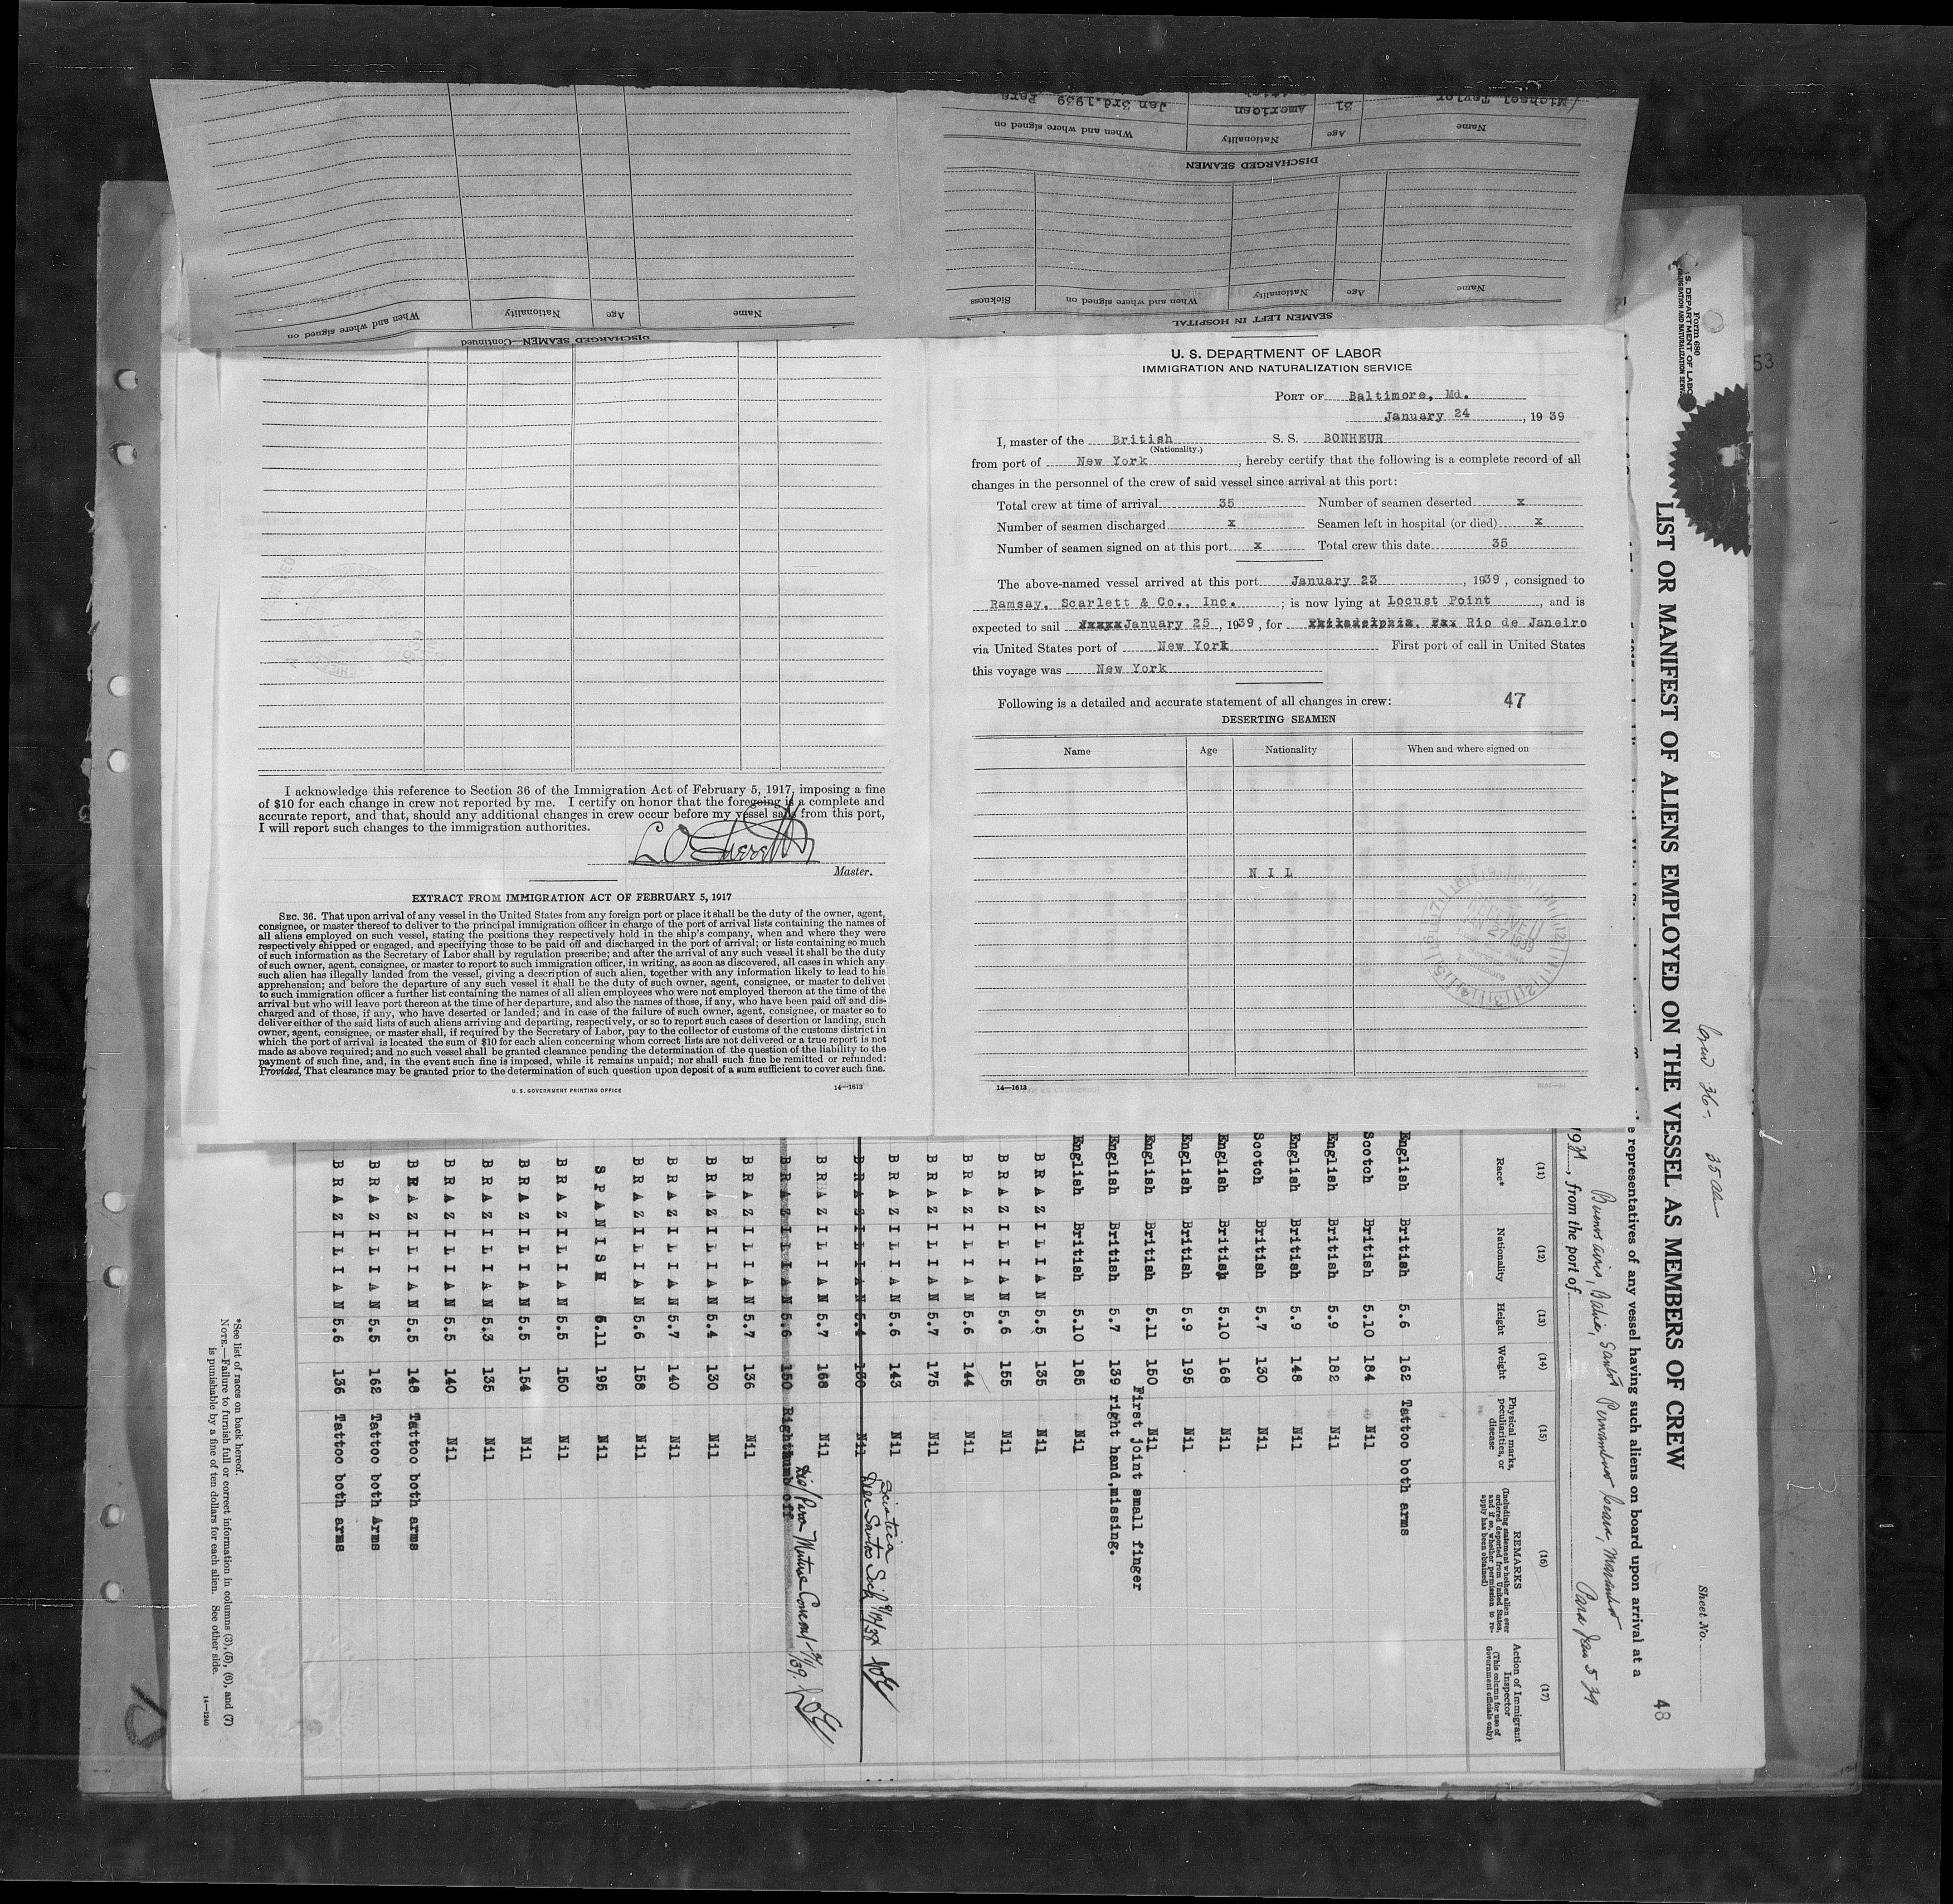 Michael Taylor 31 American Jan 3rd.1939 Para
Name Age Nationality When and where signed on
DISCHARGED SEAMEN
Name Age Nationality When and where signed on Sickness
SEAMEN LEFT IN HOSPITAL
Name Age Nationality When and where signed on
DISCHARGED SEAMEN—Continued
I acknowledge this reference to Section 36 of the Immigration Act of February 5, 1917, imposing a fine
of $10 for each change in crew not reported by me. I certify on honor that the foregoing is a complete and
accurate report, and that, should any additional changes in crew occur before my vessel sails from this port,
I will report such changes to the immigration authorities.
Master.
EXTRACT FROM IMMIGRATION ACT OF FEBRUARY 5, 1917
SEC. 36. That upon arrival of any vessel in the United States from any foreign port or place it shall be the duty of the owner, agent,
consignee, or master thereof to deliver to the principal immigration officer in charge of the port of arrival lists containing the names of
all aliens employed on such vessel, stating the positions they respectively hold in the ship's company, when and where they were
respectively shipped or engaged, and specifying those to be paid off and discharged in the port of arrival; or lists containing so much
of such information as the Secretary of Labor shall by regulation prescribe; and after the arrival of any such vessel it shall be the duty
of such owner, agent, consignee, or master to report to such immigration officer, in writing, as soon as discovered, all cases in which any
such alien has illegally landed from the vessel, giving a description of such alien, together with any information likely to lead to his
apprehension; and before the departure of any such vessel it shall be the duty of such owner, agent, consignee, or master to deliver
to such immigration officer a further list containing the names of all alien employees who were not employed thereon at the time of the
arrival but who will leave port thereon at the time of her departure, and also the names of those, if any, who have been paid off and dis-
charged and of those, if any, who have deserted or landed; and in case of the failure of such owner, agent, consignee, or master so to
deliver either of the said lists of such aliens arriving and departing, respectively, or so to report such cases of desertion or landing, such
owner, agent, consignee, or master shall, if required by the Secretary of Labor, pay to the collector of customs of the customs district in
which the port of arrival is located the sum of $10 for each alien concerning whom correct lists are not delivered or a true report is not
made as above required; and no such vessel shall be granted clearance pending the determination of the question of the liability to the
payment of such fine, and, in the event such fine is imposed, while it remains unpaid; nor shall such fine be remitted or refunded:
Provided, That clearance may be granted prior to the determination of such question upon deposit of a sum sufficient to cover such fine.
U.S. GOVERNMENT PRINTING OFFICE 14—1613
U. S. DEPARTMENT OF LABOR
IMMIGRATION AND NATURALIZATION SERVICE
PORT OF Baltimore, Md.
January 24, 1939
I, master of the British S. S. BONHEUR
(Nationality.)
from port of New York, hereby certify that the following is a complete record of all
changes in the personnel of the crew of said vessel since arrival at this port:
Total crew at time of arrival 35 Number of seamen deserted x
Number of seamen discharged x Seamen left in hospital (or died) x
Number of seamen signed on at this port x Total crew this date 35
The above-named vessel arrived at this port January 23, 1939, consigned to
Ramsay, Scarlett & Co., Inc.; is now lying at Locust Point, and is
expected to sail January 25, 1939, for Philadelphia, Pa. Rio de Janeiro
via United States port of New York First port of call in United States
this voyage was New York
Following is a detailed and accurate statement of all changes in crew: 47
DESERTING SEAMEN
Name Age Nationality When and where signed on
N I L
RECEIVED
27 1939
14—1613
53
Form 680
U. S. DEPARTMENT OF LABOR
IMMIGRATION AND NATURALIZATION SERVICE
Sheet No.
48
LIST OR MANIFEST OF ALIENS EMPLOYED ON THE VESSEL AS MEMBERS OF CREW
representatives of any vessel having such aliens on board upon arrival at a
, from the port of Buenos Aires, Bahia, Santos Pernambuco Ceara, Maranhao
Para Jan 5 39
(11) (12) (13) (14) (15) (16) (17)
Race* Nationality Height Weight Physical marks, peculiarities, or disease REMARKS (Including statement whether alien ever ordered deported from United States, and if so, whether permission to reapply has been obtained) Action of Immigrant Inspector (This column for use of Government officials only)
English British 5.6 162 Tattoo both arms
Scotch British 5.10 184 Nil
English British 5.9 182 Nil
English British 5.9 148 Nil
Scotch British 5.7 130 Nil
English British 5.10 168 Nil
English British 5.9 195 Nil
English British 5.11 150 Nil
First joint small finger
English British 5.7 139 right hand,missing.
English British 5.10 185 Nil
BRAZILIAN 5.5 135 Nil
BRAZILIAN 5.6 155 Nil
BRAZILIAN 5.6 144 Nil
BRAZILIAN 5.7 175 Nil
BRAZILIAN 5.6 143 Nil
Sciatica
BRAZILIAN 5.4 Nil
BRAZILIAN 5.7 168 Nil
BRAZILIAN 5.6 150 Right thumb off
BRAZILIAN 5.7 136 Nil
BRAZILIAN 5.4 130 Nil
BRAZILIAN 5.7 140 Nil
BRAZILIAN 5.6 158 Nil
SPANISH 5.11 195 Nil
BRAZILIAN 5.5 150 Nil
BRAZILIAN 5.5 154 Nil
BRAZILIAN 5.3 135 Nil
BRAZILIAN 5.5 140 Nil
BRAZILIAN 5.5 148 Tattoo both arms
BRAZILIAN 5.5 162 Tattoo both Arms
BRAZILIAN 5.6 136 Tattoo both arms
*See list of races on back hereof.
NOTE.—Failure to furnish full or correct information in columns (3), (5), (6), and (7)
is punishable by a fine of ten dollars for each alien. See other side.
14—1240